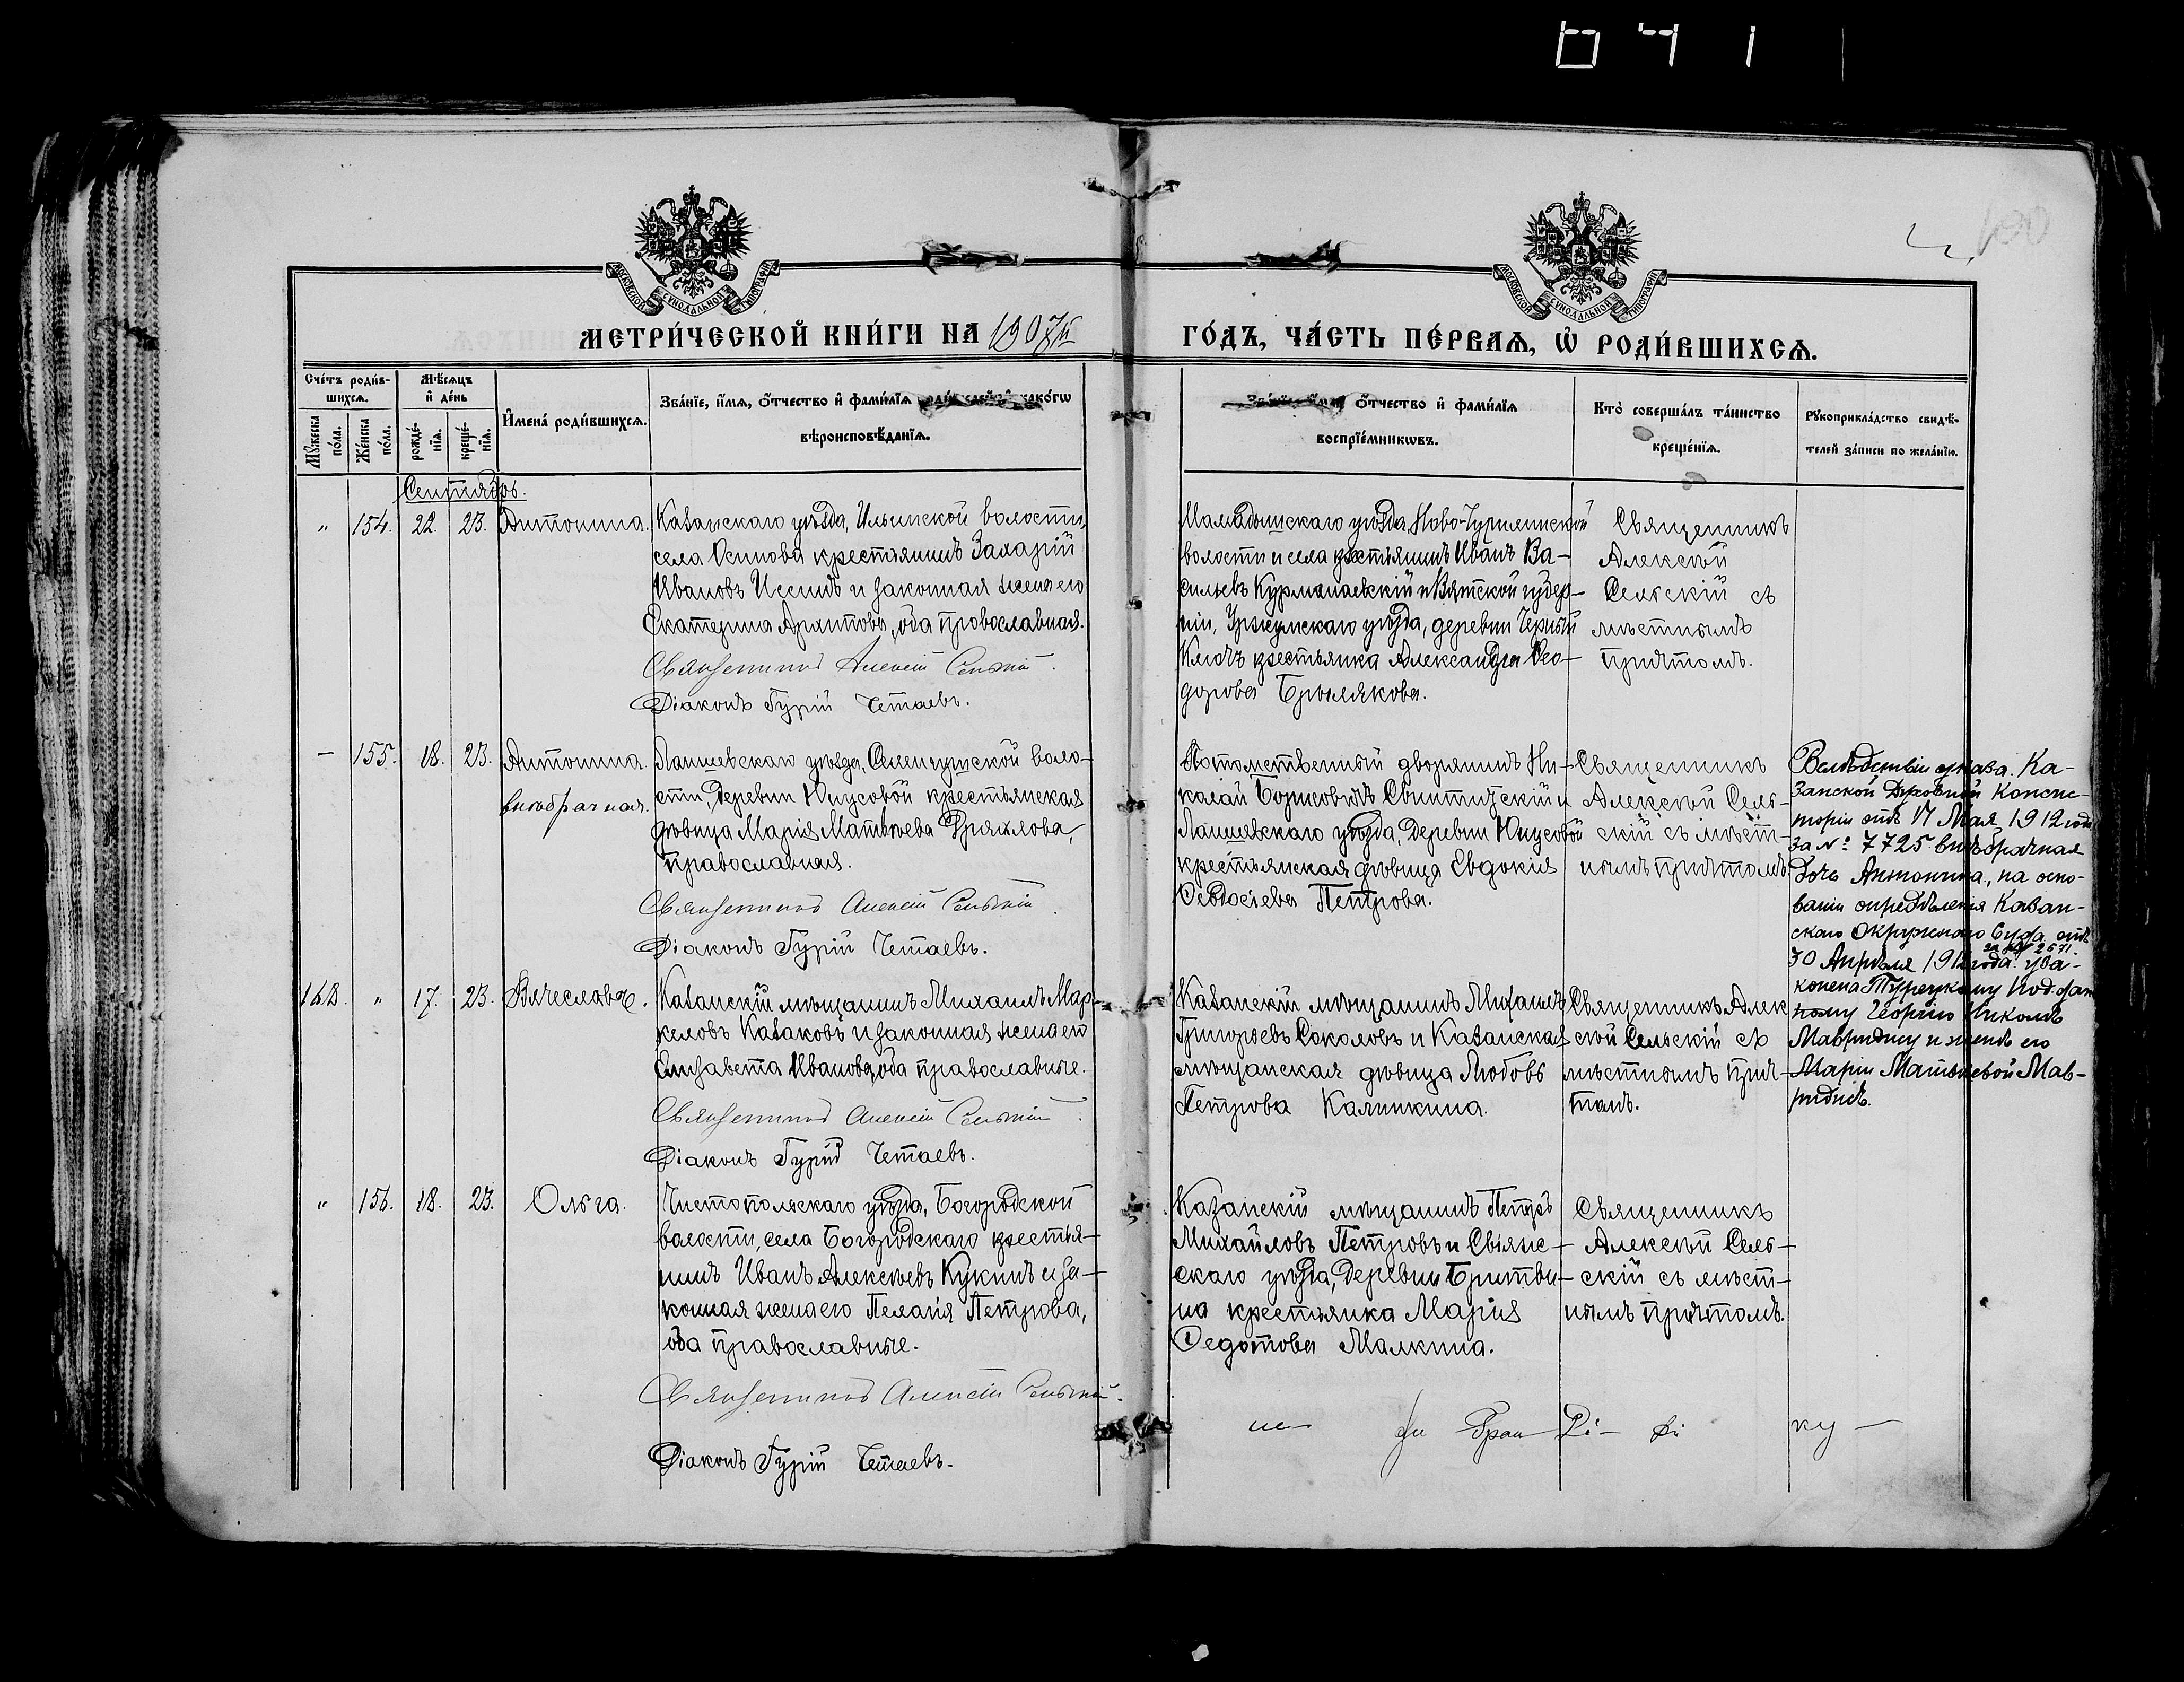 041
100
МОСКОВСКОЙ СѴНОДАЛЬНОЙ ТИПОГРАФІИ
МОСКОВСКОЙ СѴНОДАЛЬНОЙ ТИПОГРАФІИ
МЕТРИ́ЧЕСКОЙ КНИ́ГИ НА 1907й
ГО́ДЪ, ЧА́СТЬ ПЕ́РВАѦ, Ѡ҆ РОДИ́ВШИХСѦ.
Сче́тъ роди́в-
шихсѧ.
Мꙋ́жеска по́ла.
Же́нска по́ла.
Мѣ́сѧцъ
и҆ де́нь
рожде́-
нїѧ.
креще́-
нїѧ.
И҆мена̀ роди́вшихсѧ.
Зва́нїе, и҆́мѧ, ѻ҆́тчество и҆ фами́лїѧ роди́телей и҆ како́гѡ
вѣроисповѣ́данїѧ.
Зва́нїе, и҆́мѧ ѻ҆́тчество и҆ фами́лїѧ
воспрїе́мникѡвъ.
Кто̀ соверша́лъ та́инство
креще́нїѧ.
Рꙋкоприкла́дство свидѣ́-
телей за́писи по жела́нїю.
Сентябрь.
" 154. 22. 23. Антонина.
Казанскаго уѣзда, Ильинской волости,
села Осинова крестьянинъ Захарій
Ивановъ и законная жена его
Екатерина Архипова, оба православная.
Священникъ Алексій Сельскій.
Діаконъ Гурій Четаевъ.
Мамадышскаго уѣзда, Ново-Чурилинской
волости и села крестьянинъ Иванъ Ва-
сильевъ Курманаевскій и Вятской губер-
ніи, Уржумскаго уѣзда, деревни Черный
Ключъ крестьянка Александра Ѳео-
дорова Брылякова.
Священникъ
Алексѣй
Сельскій съ
мѣстнымъ
причтомъ.
— 155. 18. 23. Антонина
внѣбрачная.
Лаишевскаго уѣзда, воло-
сти, деревни Юнусовой крестьянская
дѣвица Марія Матвѣева Дряхлова,
православная.
Священникъ Алексій Сельскій.
Діаконъ Гурій Четаевъ.
Потомственный дворянинъ Ни-
колай Борисовичъ и
Лаишевскаго уѣзда, деревни Юнусовой
крестьянская дѣвица Евдокія
Ѳеодосіева Петрова.
Священникъ
Алексѣй Сель-
скій съ мѣст-
нымъ причтомъ.
Вслѣдствіи указа Ка-
занской Духовной Консис-
торіи отъ 17 Мая 1912 года
за № 7725 внѣбрачная
дочь Антонина, на осно-
ваніи опредѣленія Казан-
скаго Окружнаго Суда отъ
30 Апрѣля 1912 года за № 2571 уза-
конена Турецкому Поддан-
ному Георгію Николаѣ
Мавридису и женѣ его
Маріи Матвѣевой Мав-
ридисъ.
168. " 17. 23. Вячеславъ.
Казанскій мѣщанинъ Михаилъ Мар-
келовъ Казаковъ и законная жена его
Елизавета Иванова, оба православные.
Священникъ Алексій Сельскій.
Діаконъ Гурій Четаевъ.
Казанскій мѣщанинъ Михаилъ
Григорьевъ Соколовъ и Казанская
мѣщанская дѣвица Любовь
Петрова Калинкина.
Священникъ Алек
сѣй Сельскій съ
мѣстнымъ прич-
томъ.
" 156. 18. 23. Ольга.
Чистопольскаго уѣзда, Богородской
волости, села Богородскаго крестья-
нинъ Иванъ Алексѣевъ Кукинъ и за-
конная жена его Пелагія Петрова,
оба православные.
Священникъ Алексій Сельскій.
Діаконъ Гурій Четаевъ.
Казанскій мѣщанинъ Петръ
Михайловъ Петровъ и Свіяж-
скаго уѣзда, деревни Бритви-
на крестьянка Марія
Ѳедотова Малкина.
Священникъ
Алексѣй Сель-
скій съ мѣст-
нымъ причтомъ.
ку —